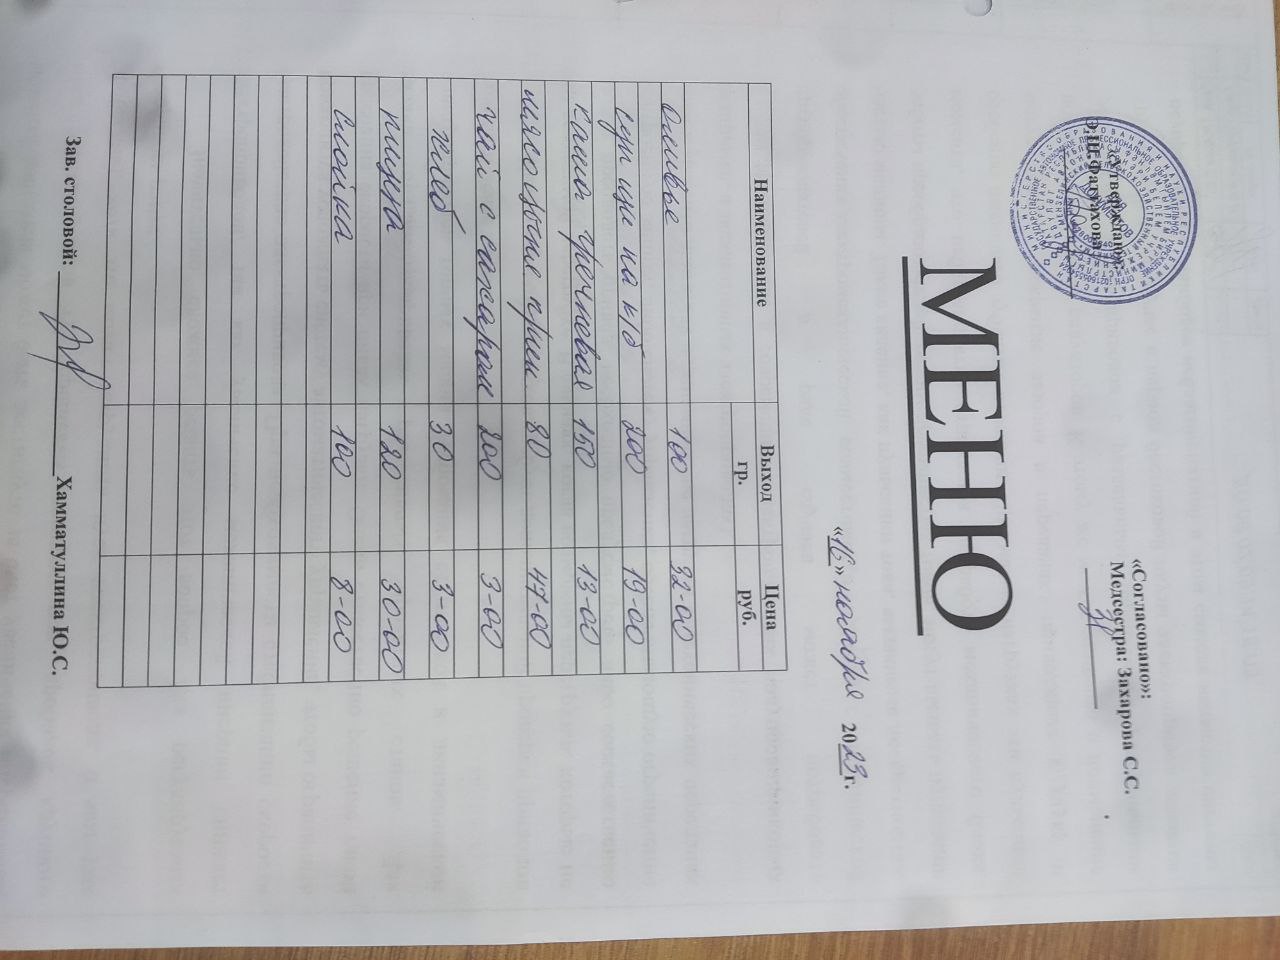 «Утверждаю»:
Э.Ш.Фаттахова
«Согласовано»:
Медсестра: Захарова С.С.
МЕНЮ
«16» ноября 2023г.
Наименование Выход гр. Цена руб.
оливье 100 32-00
суп щи на м/б 200 19-00
каша гречневая 150 13-00
мясо тушение 80 47-00
чай с сахаром 200 3-00
хлеб 30 3-00
пицца 120 30-00
слойка 100 8-00
Зав. столовой: Хамматуллина Ю.С.